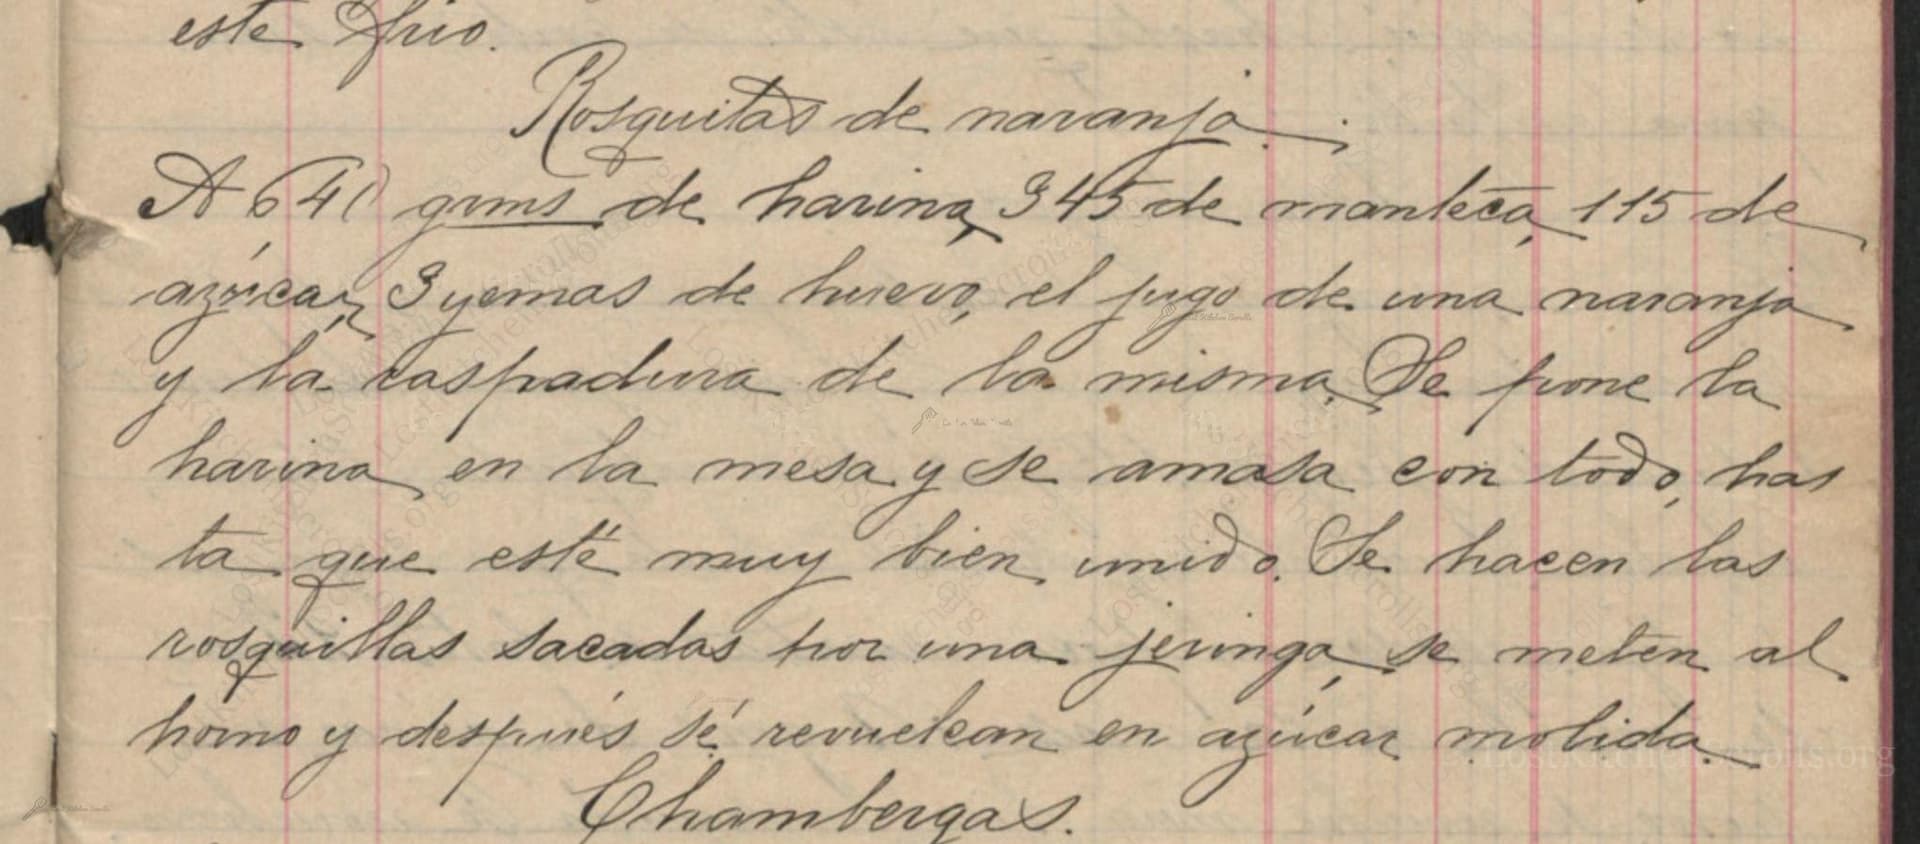 este frio.
Rosquitas de naranja.
A 640 grms de harina, 345 de manteca, 115 de
azúcar, 3 yemas de huevo, el jugo de una naranja
y la raspadura de la misma. Se pone la
harina en la mesa y se amasa con todo, has
ta que esté muy bien unido. Se hacen las
rosquillas sacadas por una jeringa, se meten al
horno y después sé revuelcan en azúcar molida.
LostKitchenScrolls.org
Chambergas.